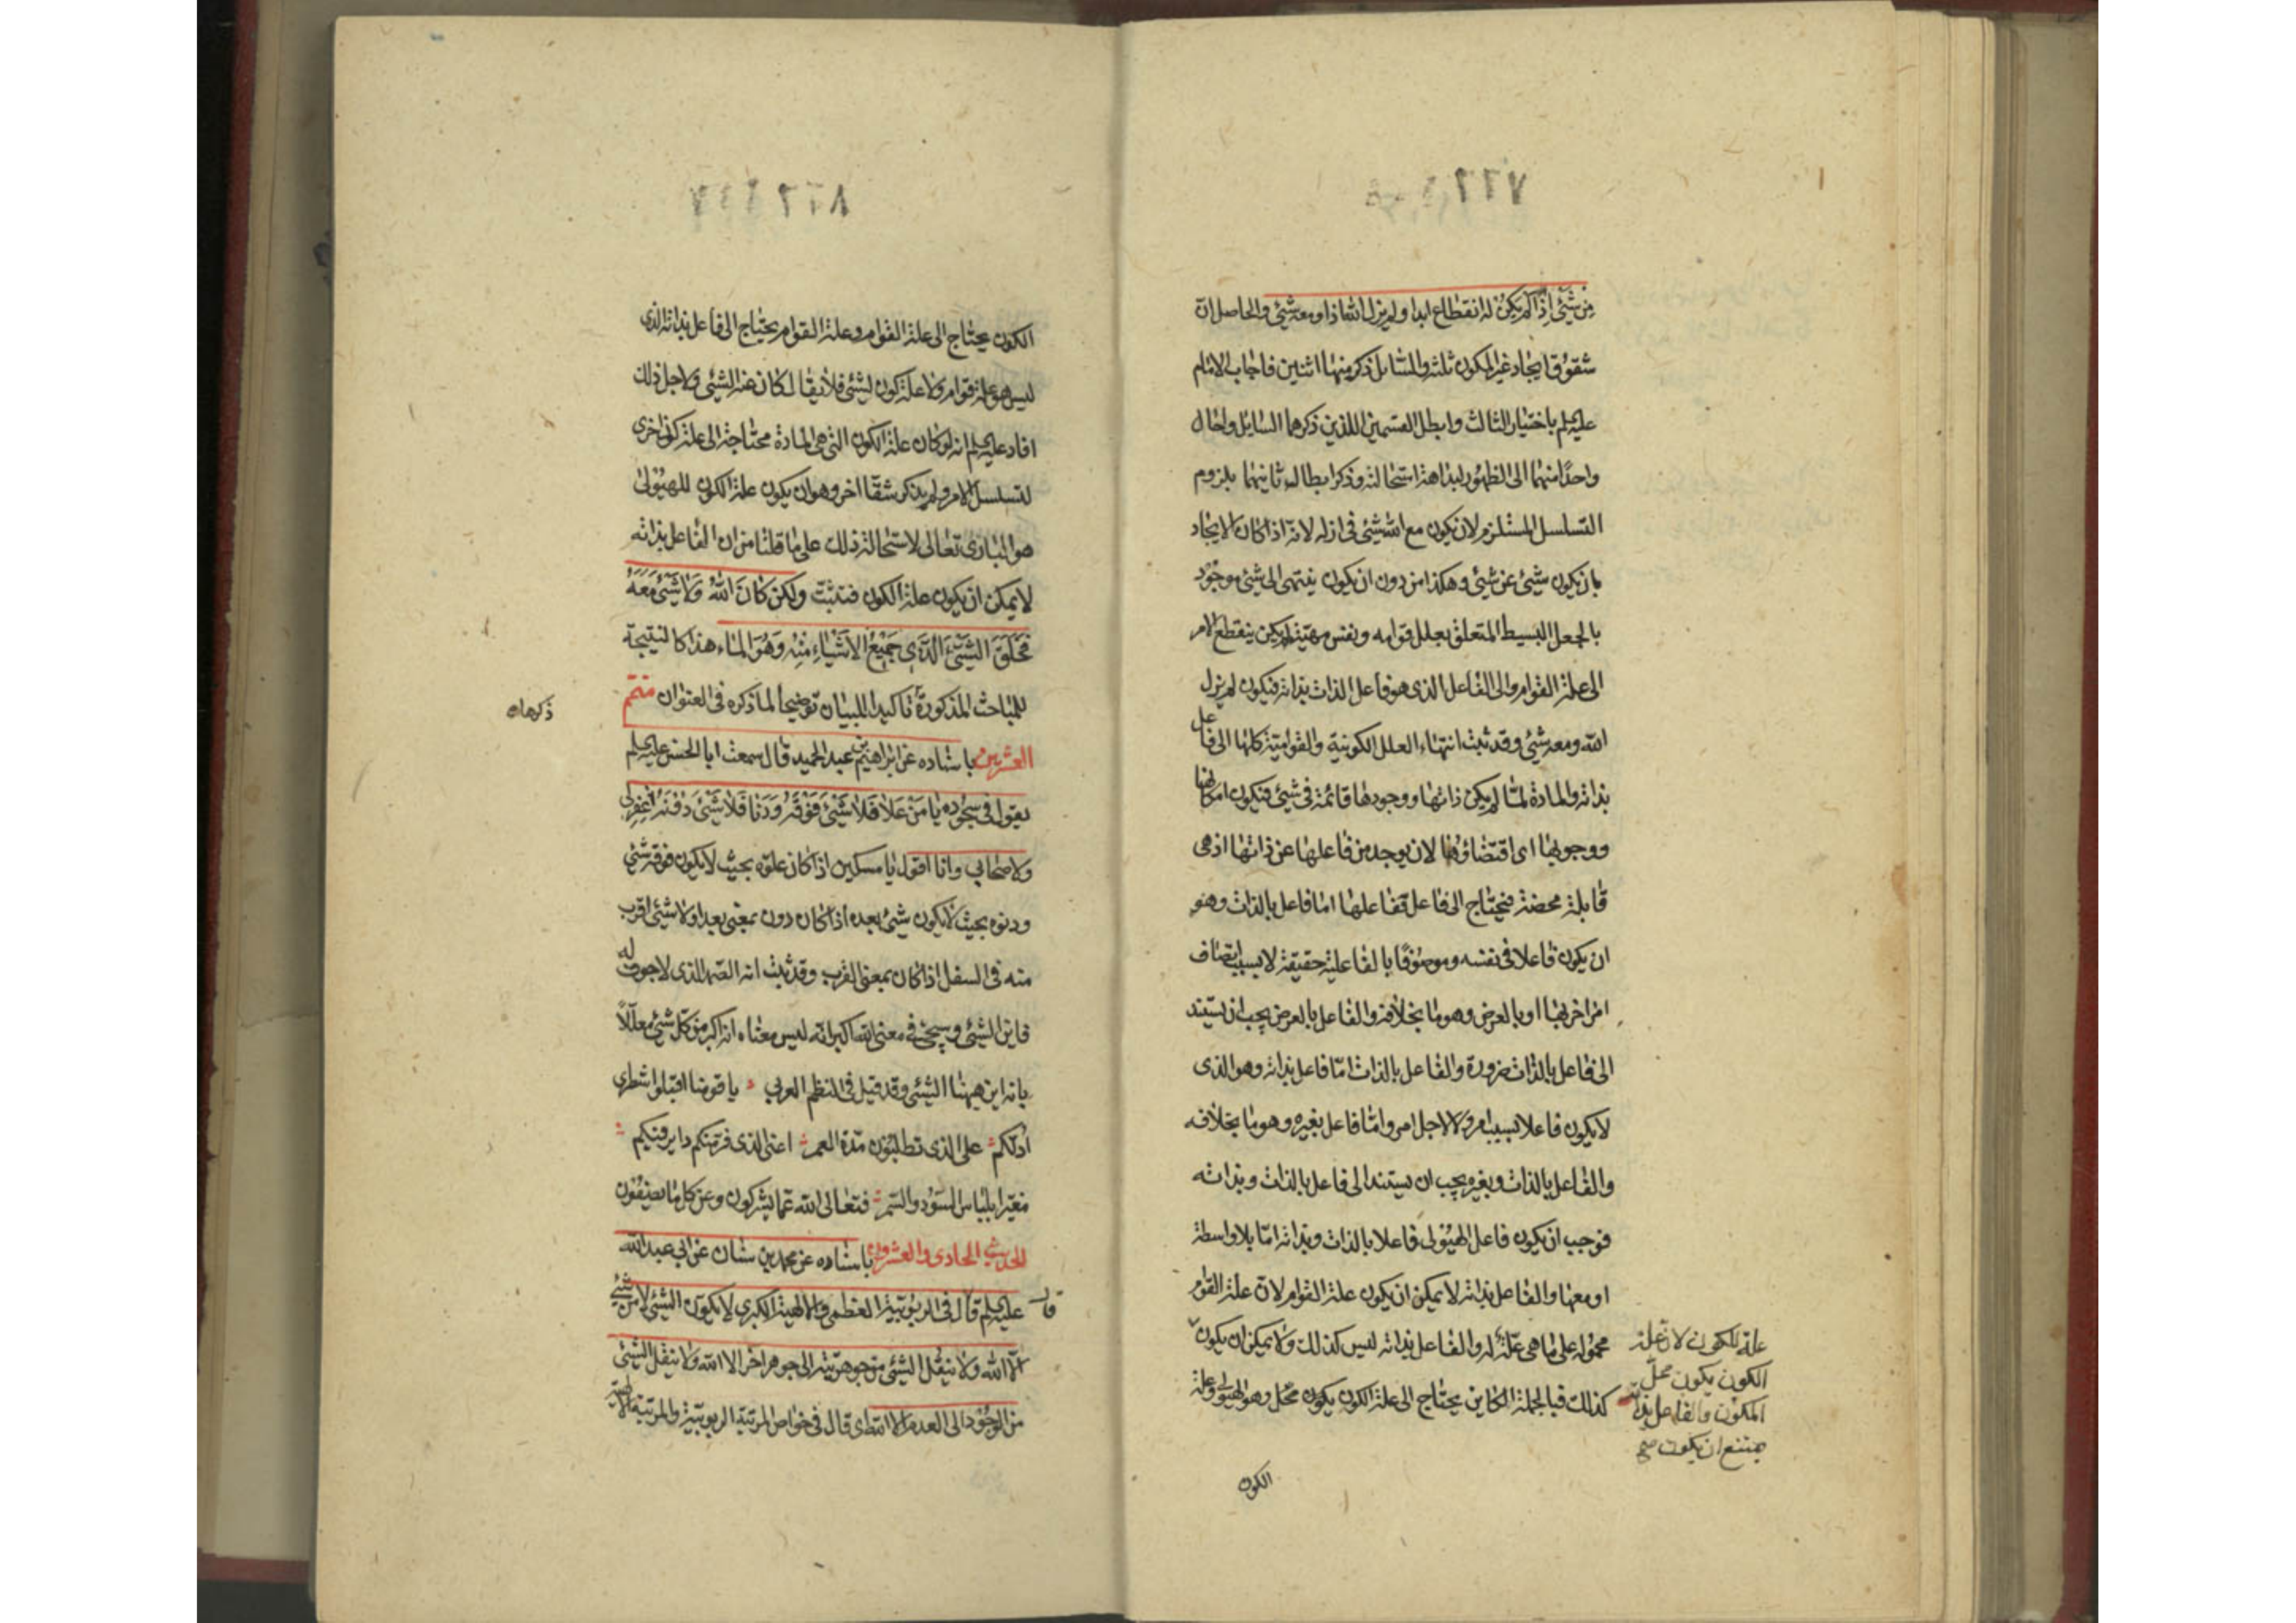 ٧٢٢
من شيء اذا لم يكن له انقطاع ابدا ولم يزل الله اذا ومعه شيء والحاصل ان
شقوق ايجاد غير المكون ثلثة والسائل ذكر منها اثنين فاجاب الامام
عليه السلم باختيار الثالث وابطل القسمين اللذين ذكرهما السايل واحال
واحدًا منهما الى الظهور لبداهة استحالته وذكر ابطال ثانيهما بلزوم
التسلسل المستلزم لان يكون مع الله شيء في ازله لانه اذا كان الايجاد
بان يكون شيئ عن شيئ وهكذا من دون ان يكون ينتهى الى شيئ موجود
بالجعل البسيط المتعلق بعلل قوامه ونفس مهيته لم يكن ينقطع الامر
الى علة القوام والى الفاعل الذى هو فاعل الذات بذاته فيكون لم يزل
الله ومعه شيئ وقد ثبت انتهاء العلل الكونية والقوامية كلها الى فاعل
بذاته والمادة لما لم يكن ذاتها ووجودها قائمة فى شيئ فيكون امكانها
ووجوبها اى اقتضاؤها لان يوجد من فاعلها عن ذاتها اذ هى
قابلة محضة فيحتاج الى فاعل ففاعلها اما فاعل بالذات وهو
ان يكون فاعلا فى نفسه وموصوفًا بالفاعلية حقيقة لا بسبب اتصاف
امر اخر بها او بالعرض وهو ما بخلافه والفاعل بالعرض يجب ان يستند
الى فاعل بالذات ضرورة والفاعل بالذات امّا فاعل بذاته وهو الذى
لا يكون فاعلا بسبب امر ولا لاجل امر وامّا فاعل بغيره وهو ما بخلافه
والفاعل بالذات وبغيره يجب ان يستند الى فاعل بالذات وبذاته
فوجب ان يكون فاعل الهيولى فاعلا بالذات وبذاته امّا بلا واسطة
او معها والفاعل بذاته لا يمكن ان يكون علة القوام لان علة القوام
محمولة على ما هى علة له والفاعل بذاته ليس كذلك ولا يمكن ان يكون
كذلك فبالجملة الكاين يحتاج الى علة الكون يكون محل وهو الهيولى وعلة
علة للكون لان علة
الكون يكون محلّ
المكون والفاعل بذاته
يمتنع ان يكون صح
الكون
٨٢٢
الكون يحتاج الى علة القوام وعلة القوام يحتاج الى فاعل بذاته الذى
ليس هو علة قوام ولا علة كون لشيئ فلا يقال كان عنه الشيئ ولاجل ذلك
افاد عليه السلم انه لو كان علة الكون التى هى المادة محتاجة الى علة كون اخرى
لتسلسل الامر ولم يذكر شقّا اخر وهو ان يكون علة الكون للهيولى
هو البارى تعالى لاستحالة ذلك على ما قلنا من ان الفاعل بذاته
لا يمكن ان يكون علة الكون فتدبّت ولكن كان الله ولا شيئ معه
فخلق الشيئ الذى جميع الاشياء منه وهو الماء هذا كالنتيجة
للمباحث المذكورة تاكيدا للبيان توضيحا لما ذكره فى العنوان متمّ
ذكرها
العشرين باسناده عن ابراهيم بن عبد الحميد قال سمعت ابا الحسن عليه السلم
يقول فى سجوده يا من علا فلا شيئ فوقه ودنا فلا شيئ دونه اغفر لى
ولاصحابى وانا اقول يا مسكين اذا كان علوّه بحيث لا يكون فوقه شيئ
ودنوه بحيث لا يكون شيئ بعده اذا كان دون بمعنى بعد او لا شيئ اقرب
منه فى السفل اذا كان بمعنى القرب وقد ثبت انه الصمد الذى لا جوف له
فاين الشيئ وسيجئ فى معنى الله اكبر انه ليس معناه انه اكبر من كل شيئ معللاً
بانه اين هيهنا الشيئ وقد قيل فى النظم العربى يا قومنا اقبلوا شطرى
ادلكم على الذى تطلبون مدة العمر اعنى الذى فرتمنكم دا يرفيكم
مغيرا بلباس السود والسمر فتعالى الله عما يشركون وعن كل ما يصفون
الحديث الحادى والعشرون باسناده عن محمد بن سنان عن ابى عبد الله
عليه السلم قال فى الربوبية العظمى والالهية الكبرى لا يكون الشيئ لا من شيئ
قال
الّا الله ولا ينقل الشيئ من جوهريته الى جوهر اخر الا الله ولا ينقل الشيئ
من الوجود الى العدم الا الله اى قال فى خواص المرتبة الربوبية والمرتبة الالهية